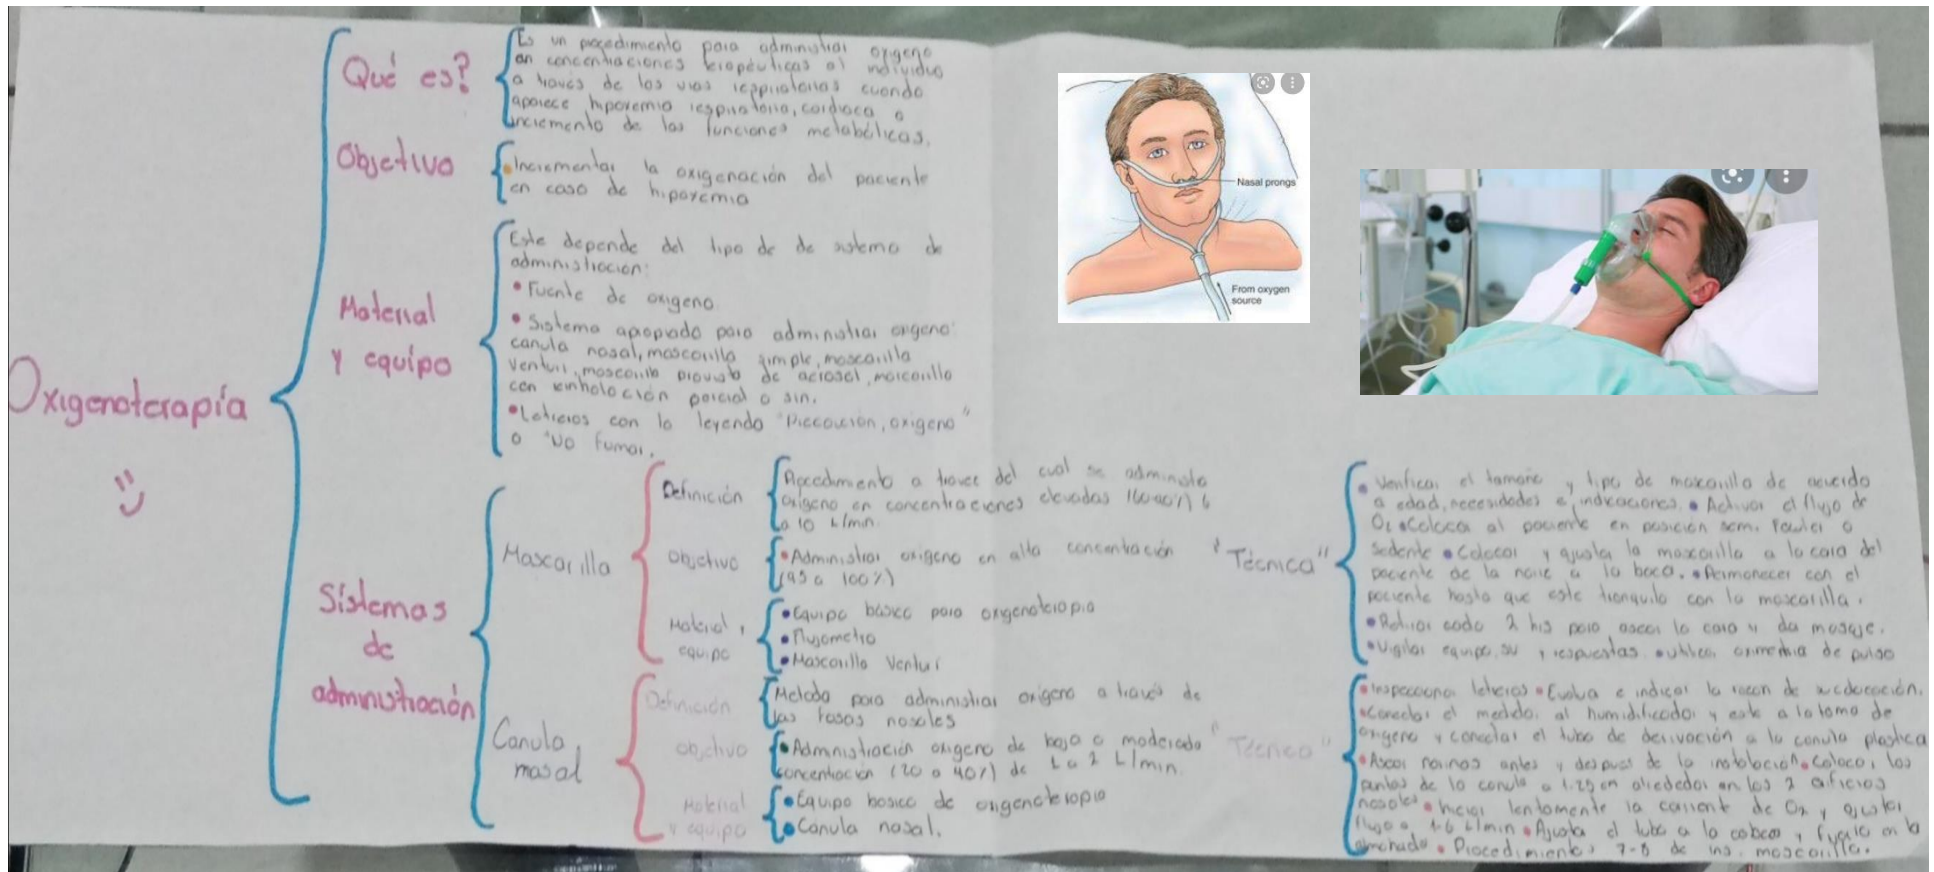 Oxigenoterapía
Qué es?
Es un procedimiento para administrar oxigeno
en concentraciones terapéuticas al individuo
a través de las vias respiratorias cuando
aparece hipoxemia respiratoria, cardiaca o
incremento de las funciones metabólicas.
Objetivo
Incrementar la oxigenación del paciente
en caso de hipoxemia
Material
y equípo
Este depende del tipo de de sistema de
administracion:
• Fuente de oxigeno.
• Sistema apropiado para administrar oxigeno:
canula nasal, mascarilla simple, mascarilla
venturi, mascarilla de aerosol, mascarilla
con reinhalación parcial o sin.
• Letreros con la leyenda "Precaución, oxigeno"
o "No fumar.
Sístemas
de
administración
Mascarilla
Definición
Procedimiento a traves del cual se administra
oxigeno en concentraciones elevadas 6
a 10 L/min.
Objetivo
• Administrar oxigeno en alta concentración
(95 a 100%)
Material y
equipo
• Equipo básico para oxigenoterapia
• Flujometro
• Mascarilla Venturi
"Técnica"
• Verificar el tamaño y tipo de mascarilla de acuerdo
a edad, necesidades e indicaciones. • Activar el flujo de
O₂ • Coloca al paciente en posición semi Fowler o
sedente • Colocar y ajusta la mascarilla a la cara del
paciente de la nariz a la boca. • Permanecer con el
paciente hasta que este tranquilo con la mascarilla.
• Retirar cada 2 hrs para asear la cara y da masaje.
• Vigilar equipo, su y respuestas. • utilizar oximetria de pulso
Canula
nasal
Definición
Metodo para administrar oxigeno a través de
las fosas nasales
objetivo
• Administración oxigeno de baja a moderada
concentración (20 a 40%) de 1 a 2 L/min.
Material
y equipo
• Equipo basico de oxigenoterapia
• Canula nasal.
"Técnica"
• Inspeccionar letreros • Evalua e indicar la razon de
• Conectar el medidor al humidificador y este a la toma de
oxigeno y conectar el tubo de derivación a la canula plastica
• Asear narinas antes y despues de la instalación. • Colocar las
puntas de la canula a 1.25 cm alrededor en los 2 orificios
nasales • Iniciar lentamente la corriente de O₂ y ajustar
flujo a 1-6 L/min • Ajusta el tubo a la cabeza y fijarlo en la
almohada • Procedimientos 7-8 de ins. mascarilla.
Nasal prongs
From oxygen
source